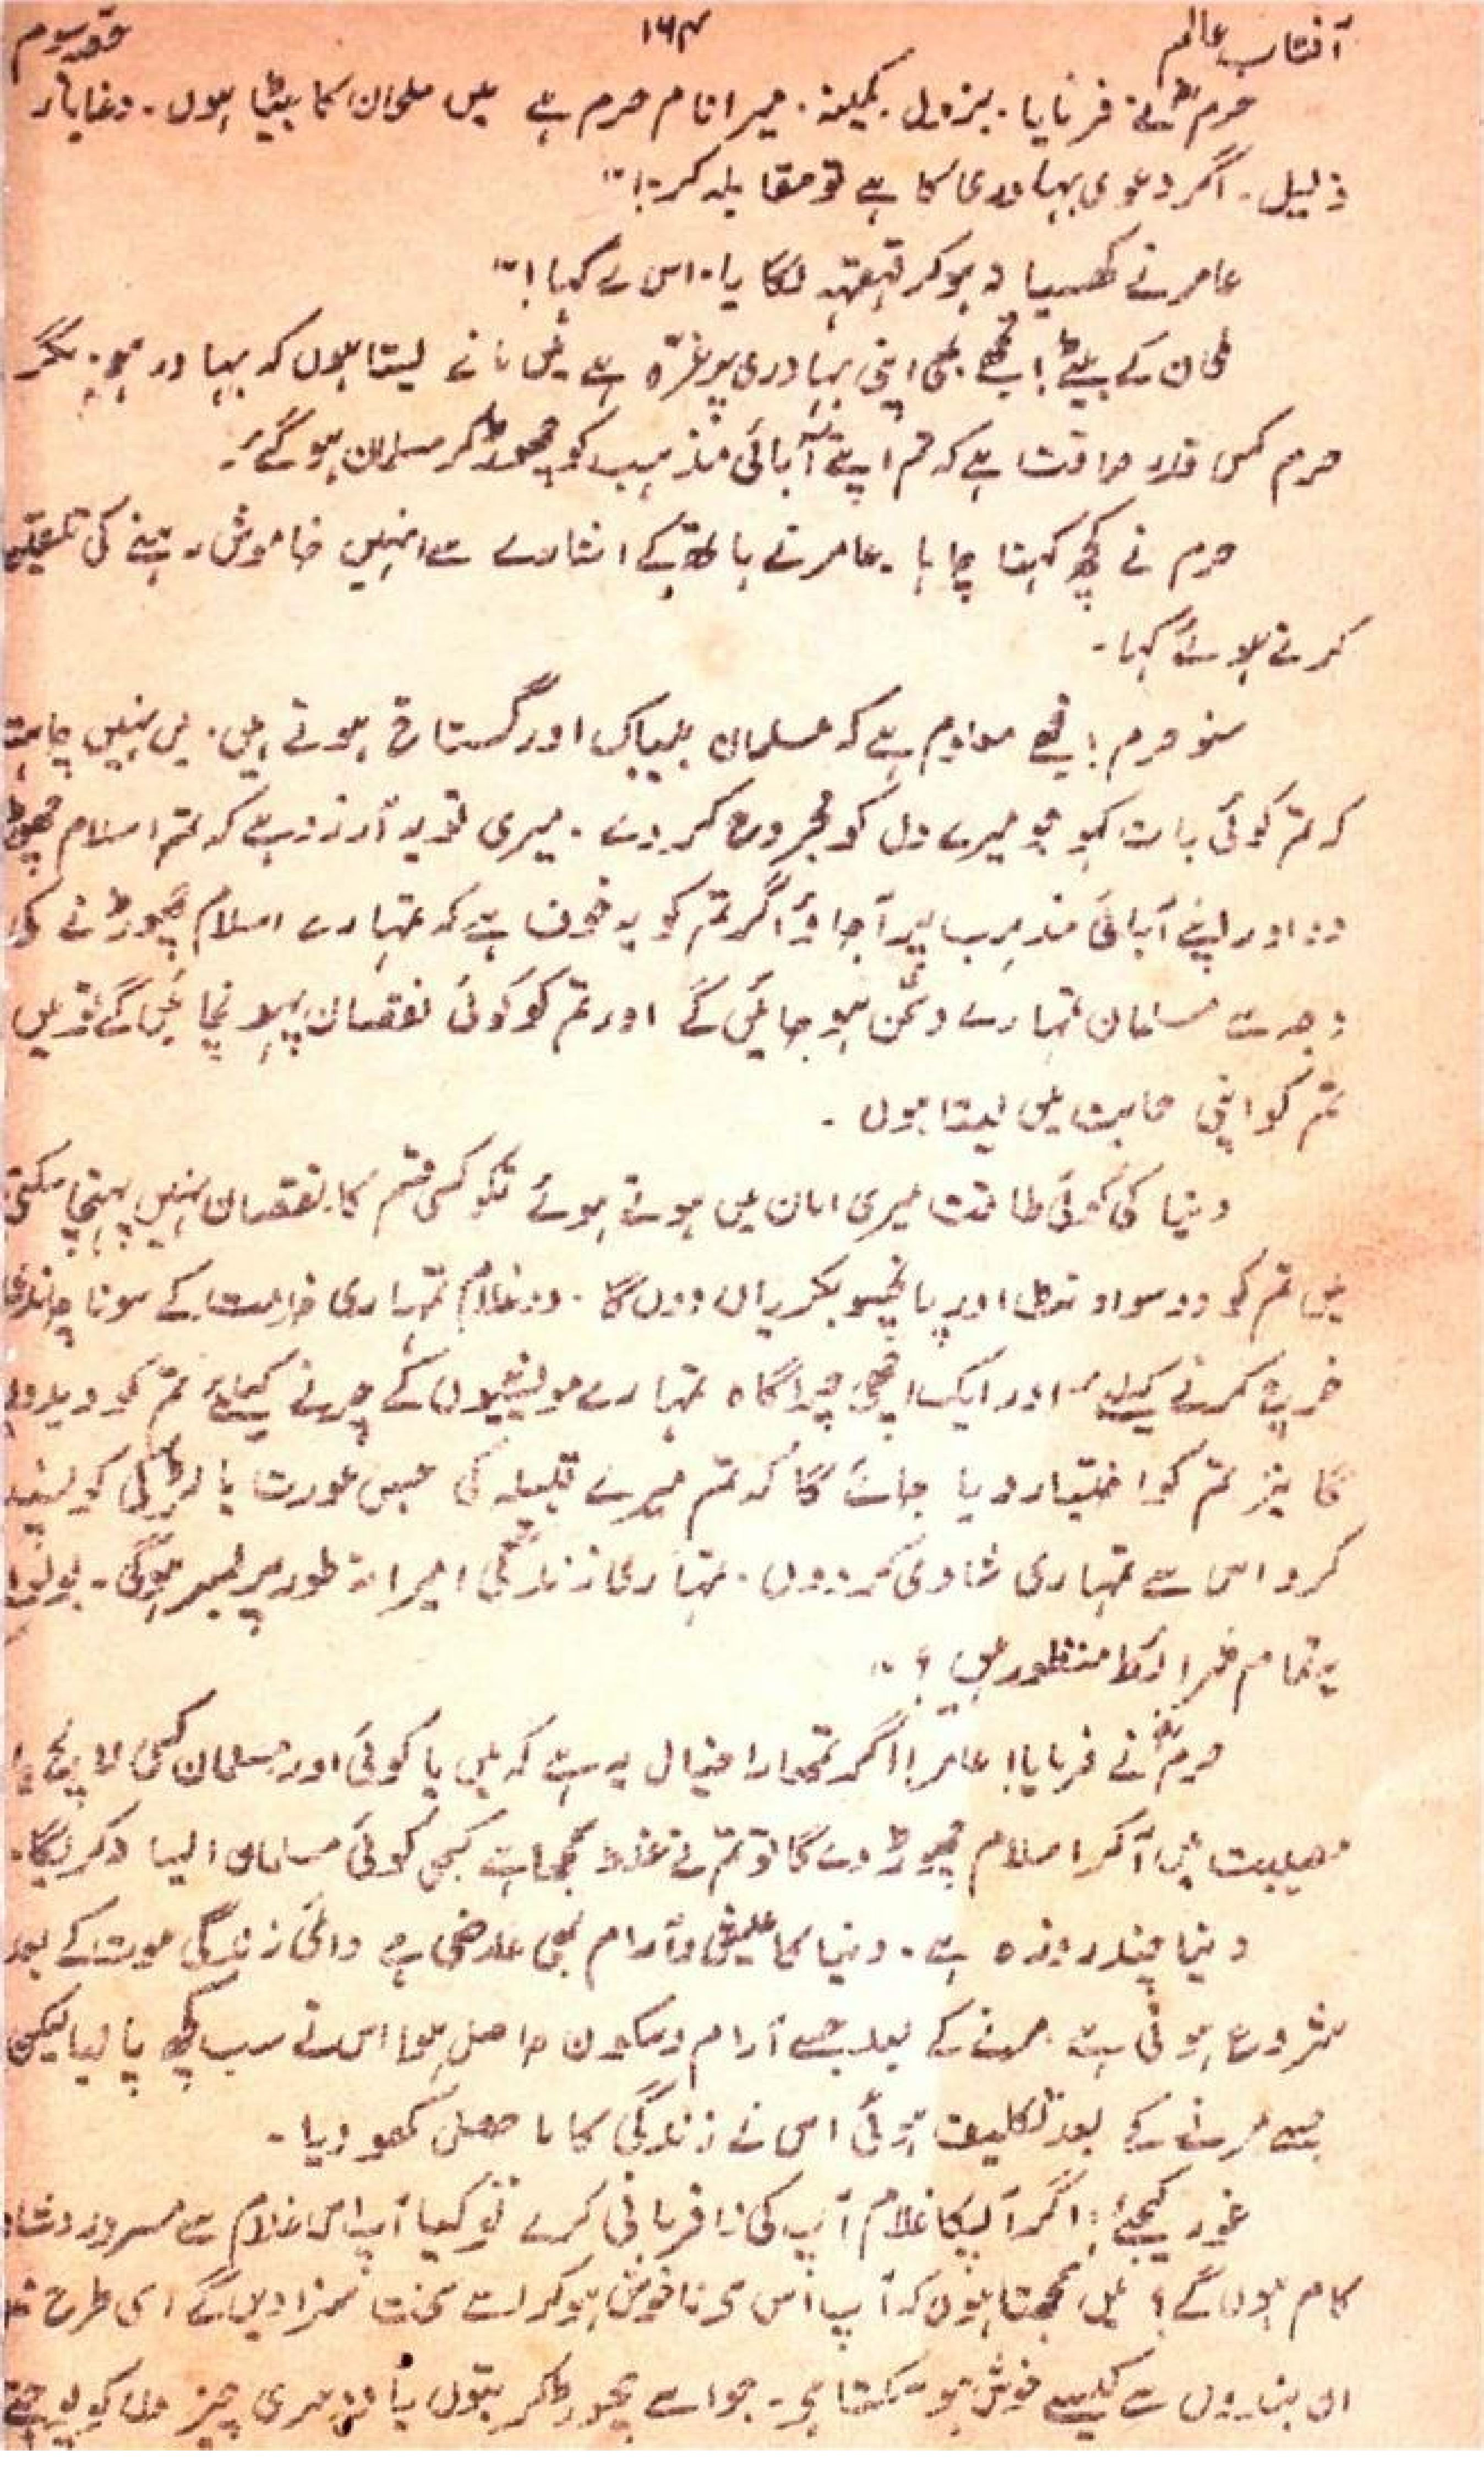 آفتاب عالم ۱۶۴ حصہ سوم
حرمؓ نے فرمایا۔ بزدل۔ کمینہ۔ میرا نام حرم ہے میں ملحان کا بیٹا ہوں۔ دغاباز
ذلیل۔ اگر دعوی بہادری کا ہے تو مقابلہ کر!"
عامر نے کھسیانہ ہوکر قہقہہ لگایا۔ اس نے کہا!"
ملحان کے بیٹے! تجھے بھی اپنی بہادری پر غرّہ ہے میں مانے لیتا ہوں کہ بہادر ہو۔ مگر
حرم کس قدر حماقت ہے کہ تم اپنے آبائی مذہب کو چھوڑ کر مسلمان ہوگئے۔
حرم نے کچھ کہنا چاہا۔ عامر نے ہاتھ کے اشارے سے انہیں خاموش رہنے کی تلقین
کرتے ہوئے کہا۔
سنو حرم! مجھے معلوم ہے کہ مسلمان بیباک اور گستاخ ہوتے ہیں۔ میں نہیں چاہتا
کہ تم کوئی بات کہو جو میرے دل کو مجروح کر دے۔ میری تو یہ آرزو ہے کہ تم اسلام چھوڑ
دو اور اپنے آبائی مذہب پر آجاؤ اگر تم کو یہ خوف ہے کہ تمہارے اسلام چھوڑنے کی
وجہ سے مسلمان تمہارے دشمن ہو جائیں گے اور تم کو کوئی نقصان پہونچائیں گے تو میں
تم کو اپنی حمایت میں لیتا ہوں۔
دنیا کی کوئی طاقت میری امان میں ہوتے ہوئے تمکو کسی قسم کا نقصان نہیں پہنچا سکتی
میں تم کو دو سو اونٹ اور پانچسو بکریاں دوں گا۔ دو غلام تمہاری خدمت کے سونا چاندی
خرچ کرنے کیلئے اور ایک اچھی چراگاہ تمہارے مویشیوں کے چرنے کیلئے تم کو دیدوں
گا نیز تم کو اختیار دیا جائے گا کہ تم میرے قبیلہ کی جس عورت یا لڑکی کو پسند
کرو اس سے تمہاری شادی کر دوں۔ تمہاری زندگی امیرانہ طور پر بسر ہوگی۔ بولو
یہ تمام شرائط منظور ہیں؟"
حرمؓ نے فرمایا! عامر! اگر تمھارا خیال یہ ہے کہ میں یا کوئی اور مسلمان کسی لالچ یا
مصیبت میں آکر اسلام چھوڑ دے گا تو تم نے غلط سمجھا ہے کبھی کوئی مسلمان ایسا نہ کریگا۔
دنیا چند روزہ ہے۔ دنیا کا عیش و آرام بھی عارضی ہے دائمی زندگی موت کے بعد
شروع ہوتی ہے۔ مرنے کے بعد جسے آرام و سکون حاصل ہوا اس نے سب کچھ پا لیا لیکن
جسے مرنے کے بعد تکلیف ہوئی اس نے زندگی کا ماحصل کھو دیا۔
غور کیجئے! اگر آپکا غلام آپ کی نافرمانی کرے تو کیا آپ اس غلام سے مسرور و شاد
کام ہوں گے؟ میں سمجھتا ہوں کہ آپ اس سے ناخوش ہوکر اسے سخت سزا دیں گے اسی طرح
ان بندوں سے کیسے خوش ہو سکتا ہے۔ جو اسے چھوڑ کر بتوں یا دوسری چیزوں کو پوجتے